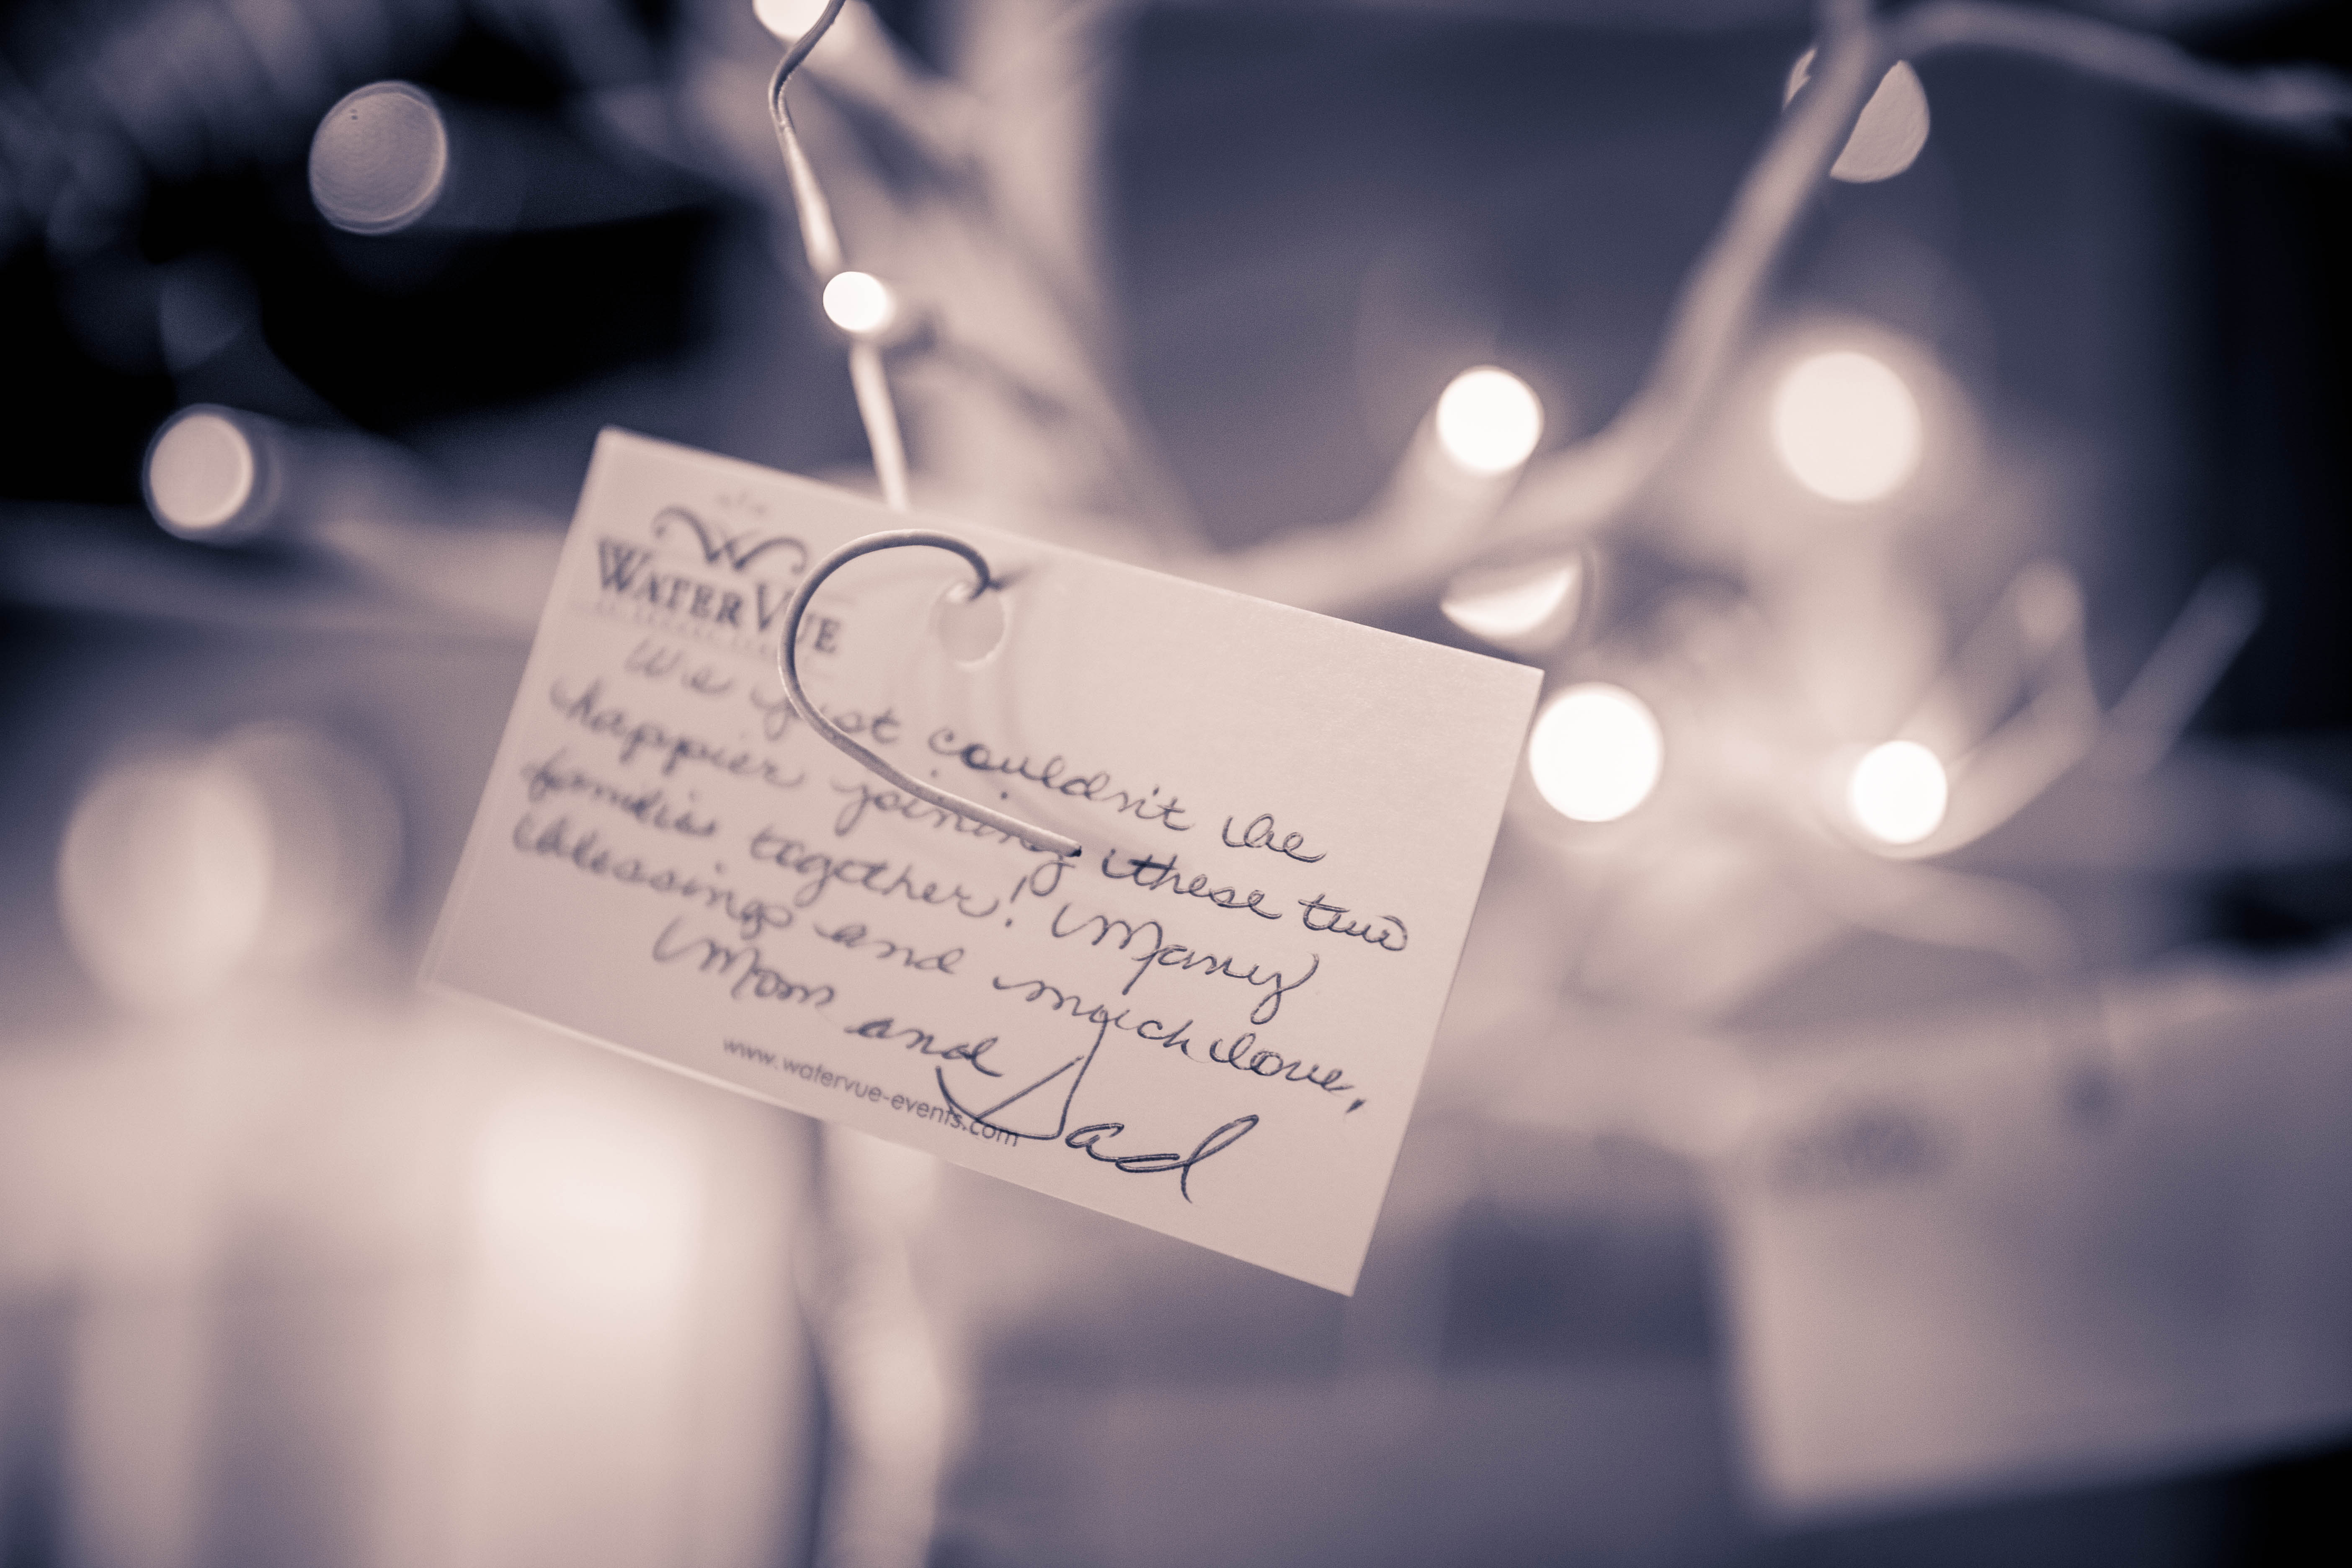 W
WATERVUE
We just couldn't be
happier joining these two
families together! Many
blessings and much love,
Mom and Dad
www.watervue-events.com